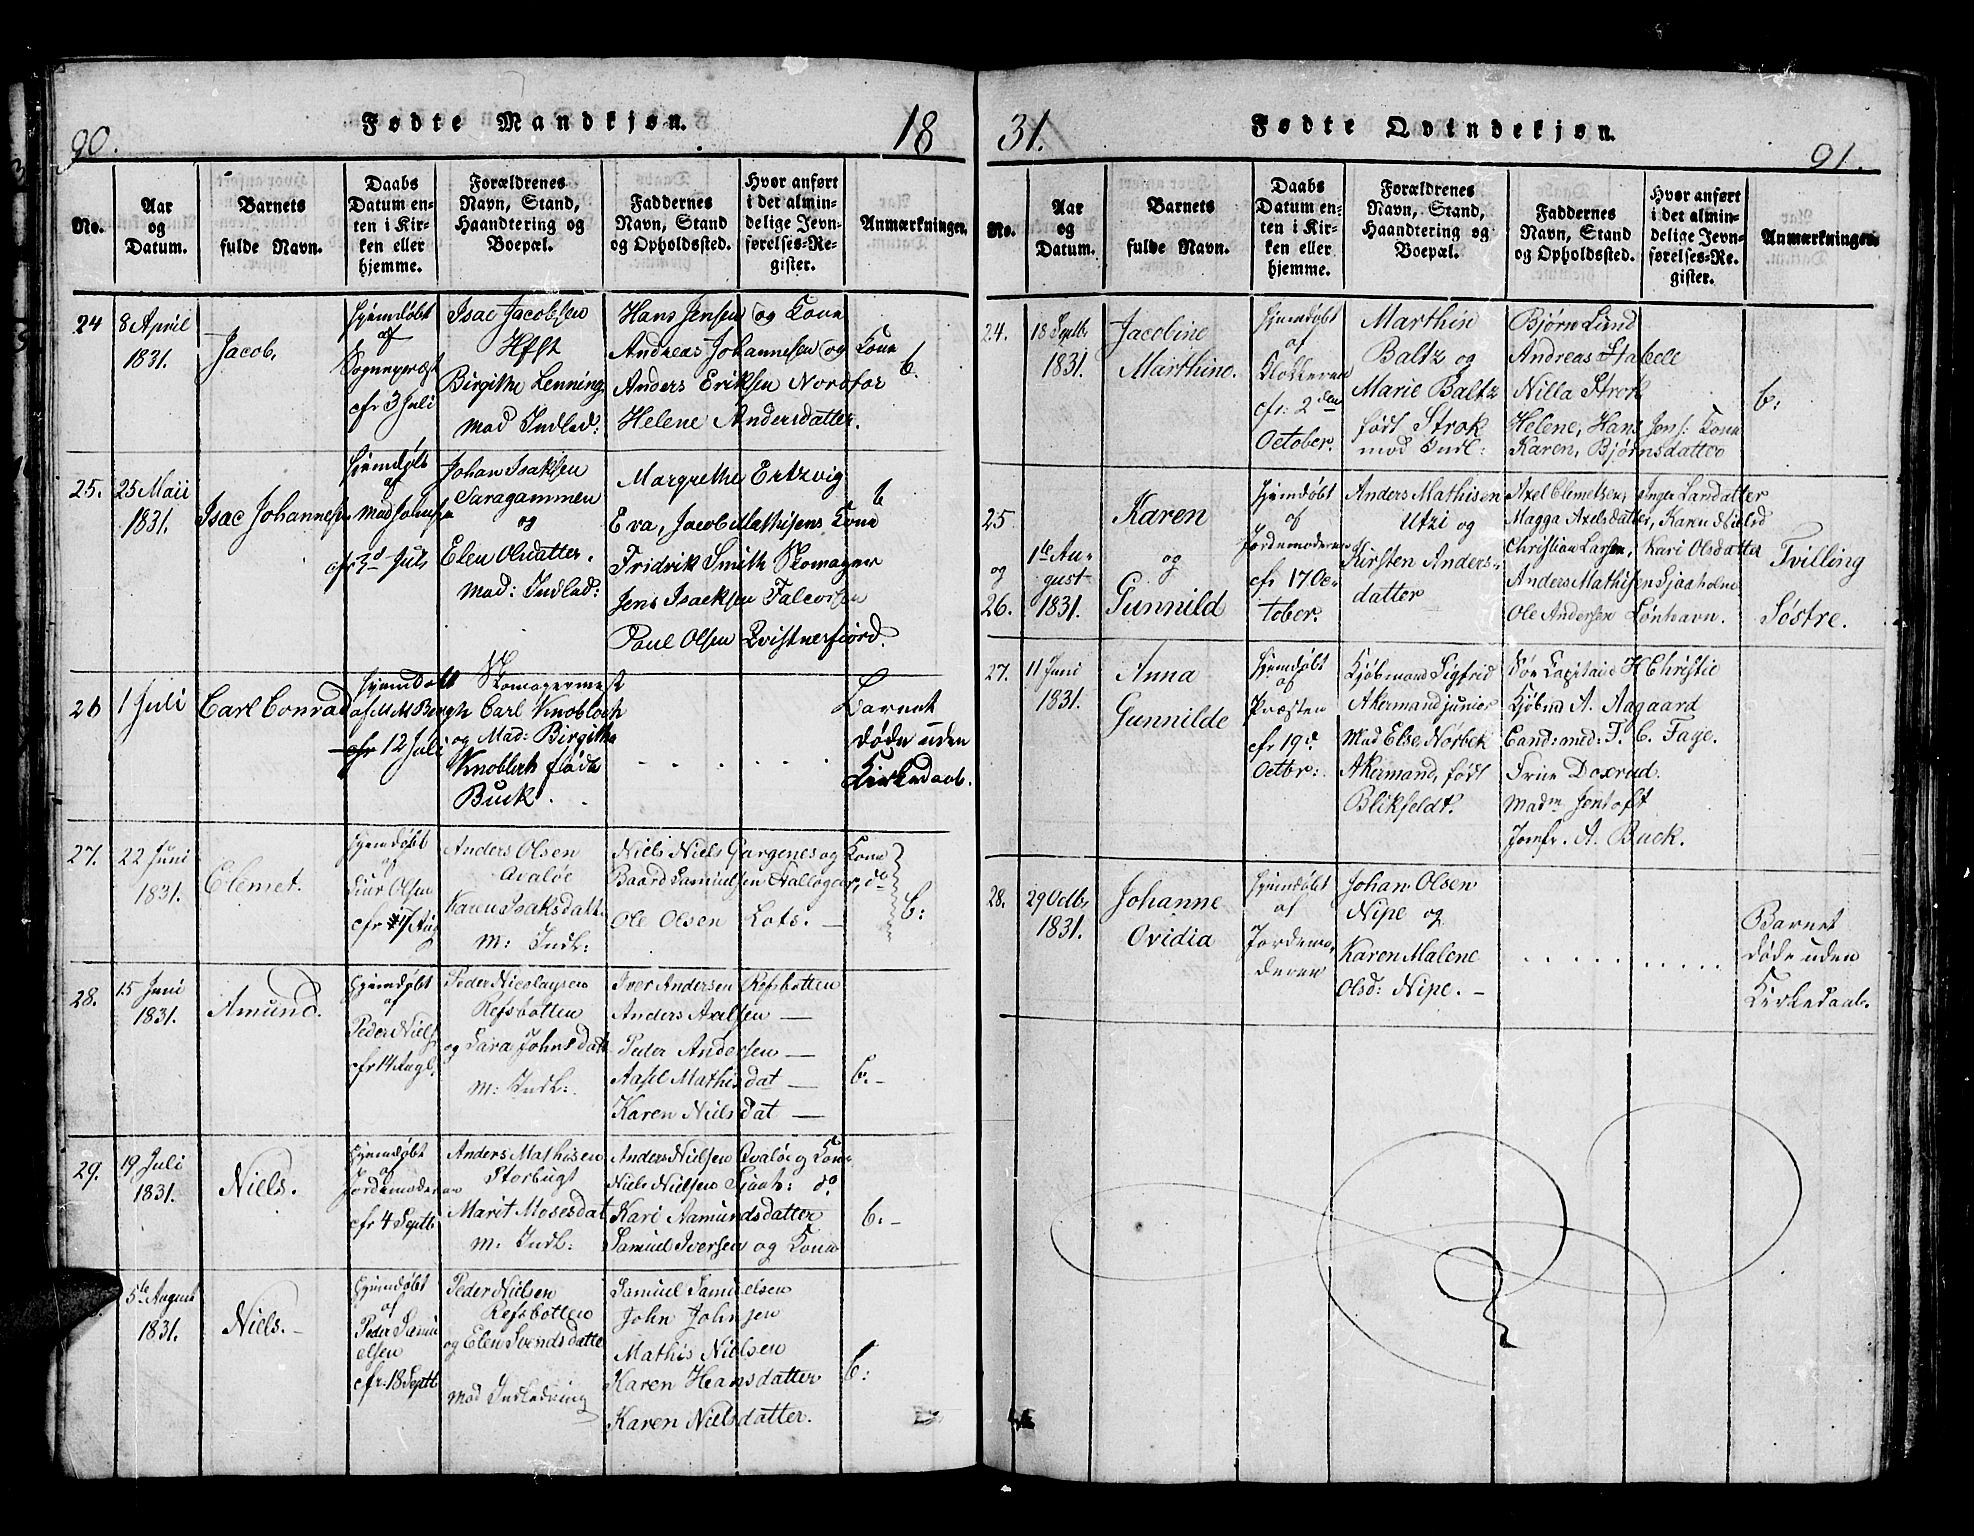 90.
Fødte Mandkjøn.
18
No.
Aar og Datum.
Barnets fulde Navn.
Daabs Datum enten i Kirken eller hjemme.
Forældrenes Navn, Stand, Haandtering og Boepæl.
Faddernes Navn, Stand og Opholdssted.
Hvor anført i det almindelige Jevnførelses-Register.
Anmærkninger.
24
8 April
1831.
Jacob,
Hjemdøbt
af
Sognepræst
cfr 3 Juli
Isac Jacobsen
Hfst
Birgithe Lenning
mod Indled:
Hans Jensen og Kone
Andreas Johannesen og Kone
Anders Eriksen Nordfor
Helene Andersdatter.
b.
25.
25 Maii
1831.
Isac Johannesen
Hjemdøbt
af
cfr 3d Juli
Johan Isaksen
Saragammen
og
Elen Olsdatter.
mod: Indled:
Margrethe Ertzvig
Eva, Jacob Mathisens Kone
Fridrik Smith Skomager
Jens Isacksen Falcosen
Paul Olsen Qvistnesfiord.
b
26
1 Juli
Carl Conrad
Hjemdøbt
af M M Bergh
cfr 12 Juli
Skomagermest
Carl Knobloch
og Mad: Birgitha
Knobloch født
Buck.
Barnet
døde uden
Kirkedaab.
27.
22 Juni
1831.
Clemet.
Hjemdøbt
af
Siur Olsen
cfr 7 Aug
Anders Olsen
Qvaløe
Karen Isaksdatt.
m: Indl:
Niels Niels Gargenes og Kone
Baard Samuelsen Hallogar, do
Ole Olsen Lots. —
b:
28.
15 Juni
1831.
Amund.
Hjemdøbt
af
Peder Niels
cfr 14 Augs.
Peder Nicolaysen
Refsbotten
og Sara Johnsdatt
m: Indl:
Iver Andersen Refsbotten
Anders Axelsen —
Peder Andersen —
Aasel Mathisdat —
Karen Nielsdat —
b.-
29.
19 Juli
1831.
Niels.
Hjemdøbt
af
Jordemoderen
cfr 4 Septb
Anders Mathisen
Storbugt
Marit Mosesdat
m: Indl:
Anders Nielsen Qvaløe og Kone
Niels Nielsen Sjaah: do
Kari Aamundsdatter
Samuel Iversen og Kone
b.-
5te August
1831.
Niels.-
Hjemdøbt
af
Peder Samu
elsen
cfr. 18 Septb
Peder Nielsen
Refsbotten
og Elen Svendsdatte
mod Indledning
Samuel Samuelsen
John Johnsen
Mathis Nielsen
Karen Hansdatter
Karen Nielsdatter.
b:
31.
Fødte Qvindekjøn.
91.
No.
Aar og Datum.
Barnets fulde Navn.
Daabs Datum enten i Kirken eller hjemme.
Forældrenes Navn, Stand, Haandtering og Boepæl.
Faddernes Navn, Stand og Opholdssted.
Hvor anført i det almindelige Jevnførelses-Register.
Anmærkninger.
24.
18 Septb.
1831.
Jacobine
Marthine.
Hjemdøbt
af
Klokkeren
cfr: 2den
October.
Marthin
Baltz og
Marie Baltz
født Strok
mod Indl:
Bjørn Lund
Andreas Stabell
Nilla Strok
Helene, Hans Jens: Kone
Karen, Bjørnsdatter
b:
25
og
26.
1te Au-
gust
1831.
Karen
og
Gunnild
Hjemdøbt
af
Jordemoderen
cfr 17 Oc-
tober.
Anders Mathisen
Utzi og
Kirsten Anders-
datter
Axel Clemetsen, Inger Larsdatter
Magga Axelsdatter, Karen Nielsd
Christian Larsen, Kari Olsdatter
Anders Mathisen Sjaaholme
Ole Andersen Lønhavn.
Tvilling
Søstre.
27.
11 Juni
1831.
Anna
Gunnilde
Hjemdøbt
af
Præsten
cfr 19de
Octbr:
Kjøbmand Sigfrid
Akermand junior
Mad Else Norbek
Akermand, født
Blikfeldt.
Søe Capitain H Christie
Kjøbmd A. Aagaard
Cand: med: F. C. Faye.
Frue Doxrud.
Madm Jentoft
Jomfr. A. Buck.
28.
29 Octbr
1831.
Johanne
Ovidia
Hjemdøbt
af
Jordemo-
deren
Johan Olsen
Nipe og
Karen Malene
Olsd: Nipe. —
Barnet
døde uden
Kirkedaab.